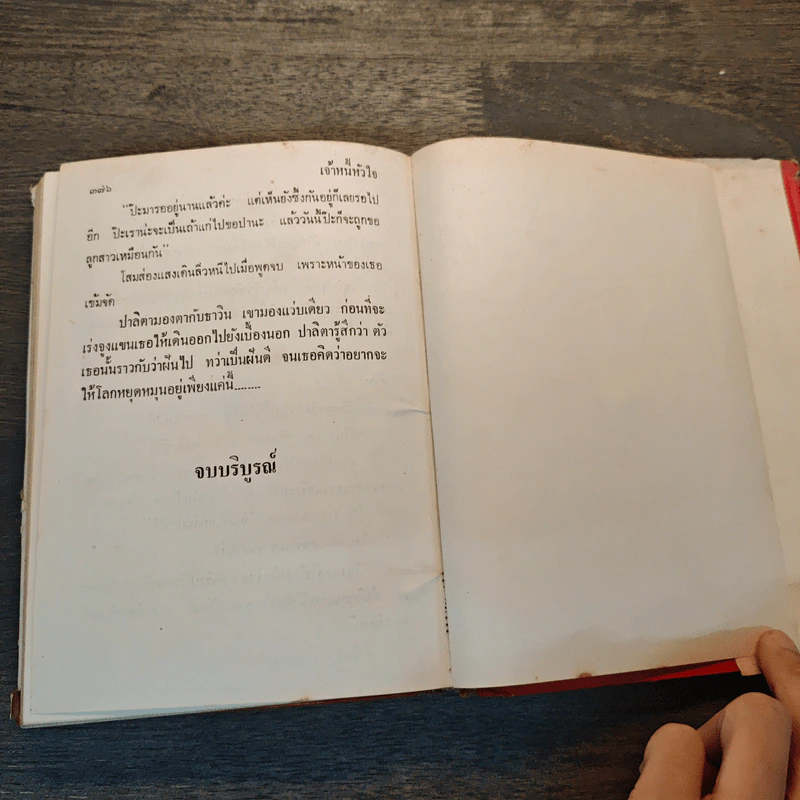 ๓๗๖
เจ้าหนี้หัวใจ
"ป๊ะมารออยู่นานแล้วค่ะ แต่เห็นยังซึ้งกันอยู่ก็เลยรอไป
อีก ป๊ะเรานะจะเป็นเถ้าแก่ไปขอปานะ แล้ววันนี้ป๊ะก็จะถูกขอ
ลูกสาวเหมือนกัน"
โสมส่องแสงเดินลิ่วหนีไปเมื่อพูดจบ เพราะหน้าของเธอ
เข้มจัด
ปาลิตามองตากับธาวิน เขามองแว่บเดียว ก่อนที่จะ
เร่งจูงแขนเธอให้เดินออกไปยังเบื้องนอก ปาลิตารู้สึกว่า ตัว
เธอนั้นราวกับว่าฝันไป ทว่าเป็นฝันดี จนเธอคิดว่าอยากจะ
ให้โลกหยุดหมุนอยู่เพียงแค่นี้........
จบบริบูรณ์